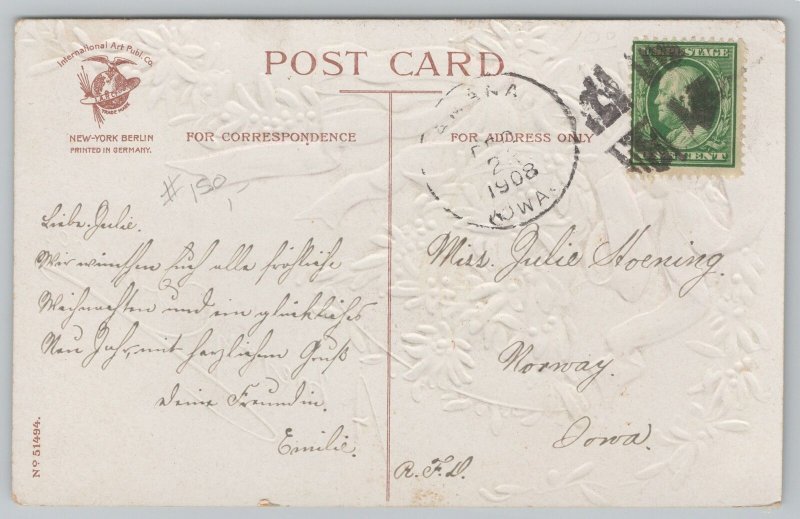 International Art Publ. Co.
TRADE MARK
NEW-YORK BERLIN
PRINTED IN GERMANY.
POST CARD
FOR CORRESPONDENCE
FOR ADDRESS ONLY
AMANA
DEC
1908
IOWA.
POSTAGE
CENT
#150,-
Liebe Julie.
Wir wünschen Euch alle fröhliche
Weihnachten und ein glückliches
Neu Jahr, mit herzlichem Gruß
Deine Freundin.
Emilie.
Miss. Julie Hoening.
Norway.
Iowa.
R.F.D.
No 51494.